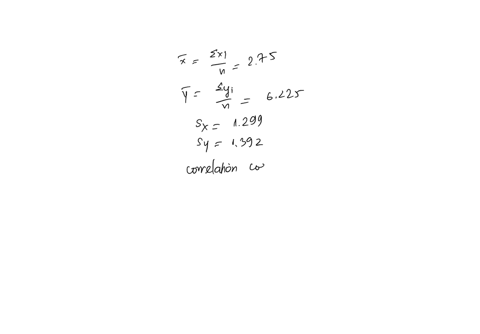 x̄ = Σxi/n = 2.75
ȳ = Σyi/n = 6.225
Sx = 1.299
Sy = 1.392
correlation co